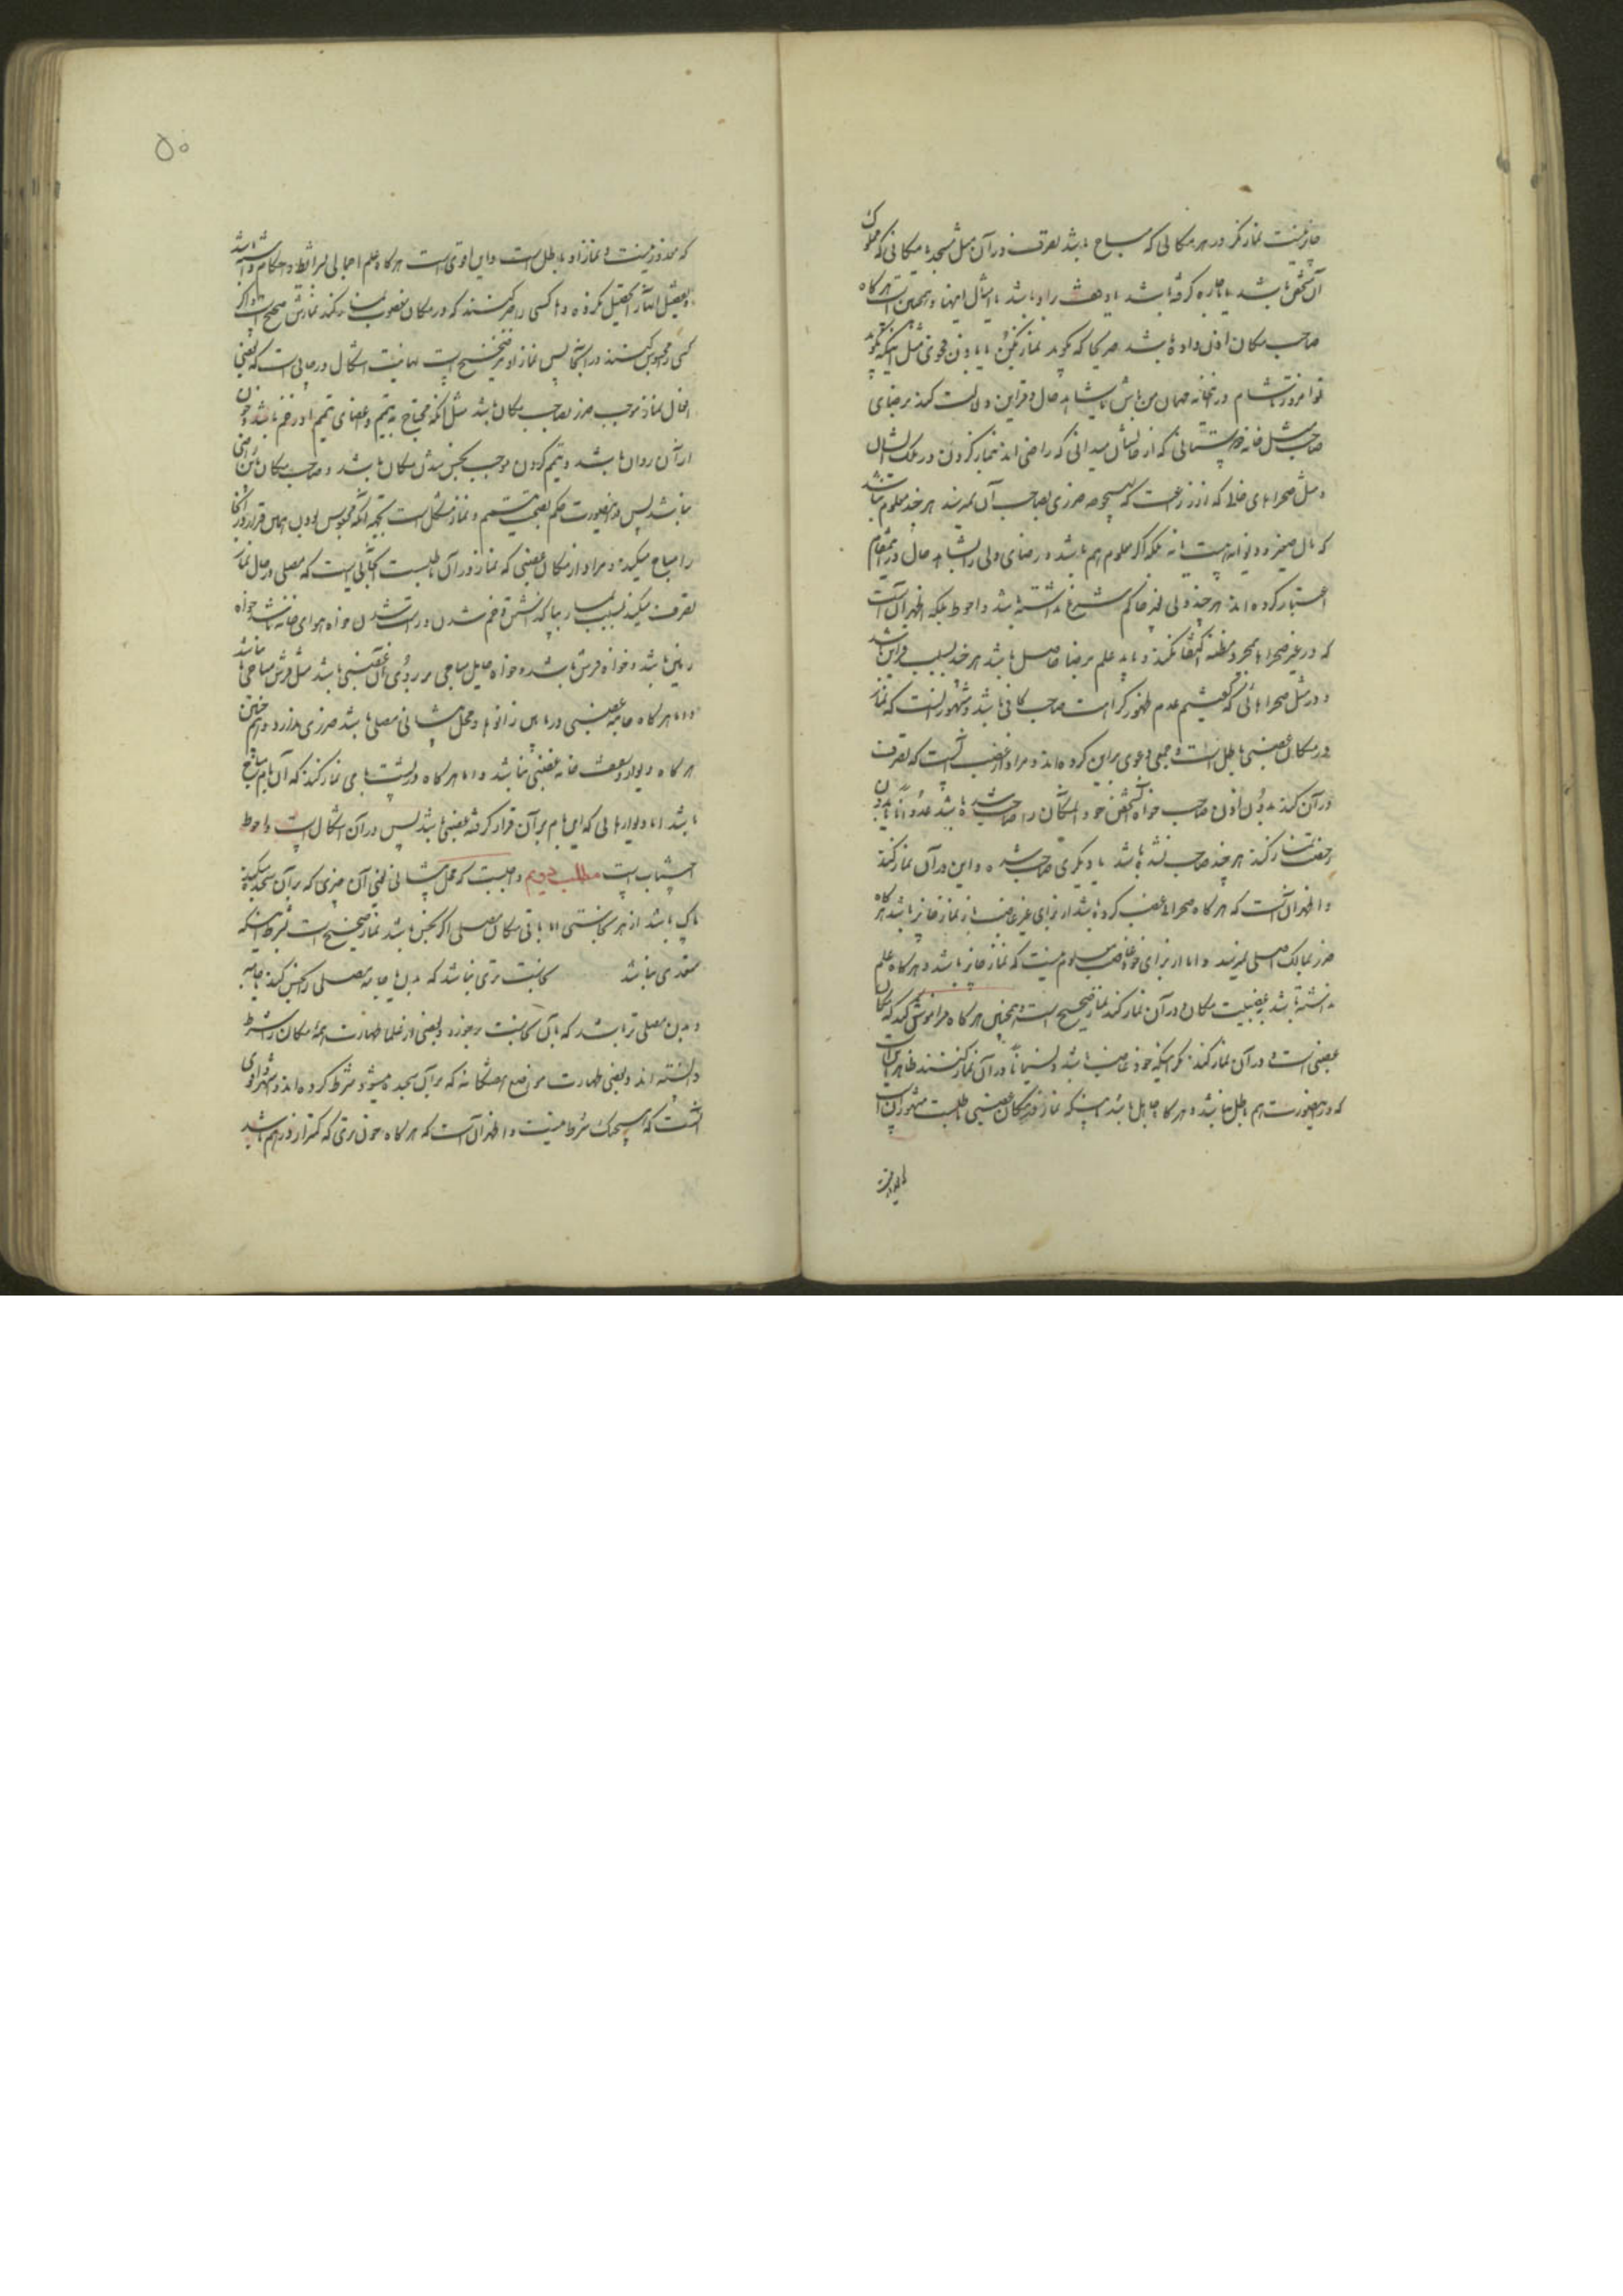 جایز نیست نماز مگر در هر مکانی که مباح باشد تصرف در آن مثل مسجد یا مکانی که مملوک
آن شخص باشد یا باجاره گرفته باشد یا وقف بر او باشد یا امثال اینها و همچنین است هرگاه
صاحب مکان اذن داده باشد صریحا که بگوید نماز بکن یا باذن فحوی مثل اینکه بگوید
تو امروز تا شام در خانه مهمان من باش یا بشاهد حال و قراین دلالت کند بر رضای
صاحب مثل خانه دوستانی که از حالشان میدانی که راضی اند بنماز کردن در ملک ایشان
و مثل صحراهای خالی از زراعت که هیچوجه ضرری بصاحب آن نمیرسد هر چند معلوم نباشد
که مال صغیر و دیوانه هست یا نه بلکه اگر معلوم هم باشد و رضای ولی را بشاهد حال در این مقام
اعتبار کرده اند هر چند ولی بغیر حاکم شرع نداشته باشد و احوط بلکه اظهر آن است
که در غیر صحراها بمجرد مظنه اکتفا نکند و باید علم برضا حاصل باشد هر چند بسبب قراین باشد
و در مثل صحراهائی که گفتیم عدم ظهور کراهت صاحب کافی باشد و مشهور آنست که نماز
در مکان غصبی باطل است و جمعی دعوی براین کرده اند و مراد از غصب آنست که تصرف
در آن کند بدون اذن صاحب خواه آن شخص خود آن مکان را صاحب شده باشد عدوانا یا بدون
رخصت نماز کند هر چند صاحب نشده باشد یا دیگری صاحب شده و این در آن نماز کند
و اظهر آن است که هرگاه صحرا را غصب کرده باشد از برای غیر غاصب باز نماز جایز باشد هرگاه
ضرر بمالک اصلی نرسد و اما از برای خود غاصب معلوم نیست که نماز جایز باشد و هرگاه علم
نداشته باشد بغصبیت مکان و در آن نماز کند نماز صحیح است و همچنین هرگاه فراموش کند که مکان
غصبی است و در آن نماز کند مگر اینکه خود غاصب باشد و نسیانا در آن نماز کند ظاهر این است
که در این صورت هم باطل باشد و هرگاه جاهل باشد باینکه نماز در مکان غصبی باطلست مشهور آن است
که معذور نیست و نماز او باطل است و این اقوی است هرگاه علم اجمالی بشرایط و احکام داشته باشد
و تفصیل آنها را تحصیل نکرده و هرگاه کسی را جبر کنند که در مکان مغصوب نماز کند نمازش صحیح است و اگر
کسی را محبوس کنند در آنجا پس نماز او نیز صحیح است نهایت اشکال در جایی است که بعضی
افعال نماز موجب ضرر بصاحب مکان باشد مثل آنکه محتاج به تیمم و اعضای تیمم او زخم باشد و خون
از آن روان باشد و تیمم کردن موجب نجس شدن مکان باشد و صاحب مکان باین راضی
نباشد پس در این صورت حکم بصحت تیمم و نماز مشکل است بجهه آنکه محبوس بودن همان قرار در آنجا
را مباح میکند و مراد از مکان غصبی که نماز در آن باطلست آنجائی است که مصلی در حال نماز
تصرف میکند بسبب نماز بپا گذاشتن و خم شدن و راست شدن خواه هوای خانه باشد خواه
زمین باشد و خواه فرش باشد و خواه حایل مباحی بر روی آن غصبی باشد مثل فرش مباحی یا نباشد
و اما هرگاه جامه غصبی در مابین زانوها و محل پیشانی مصلی باشد ضرری ندارد و همچنین
هرگاه دیوار و سقف خانه غصبی باشد و اما هرگاه در پشت بامی نماز کند که آن بام مباح
باشد اما دیوارهایی که این بام بر آن قرار گرفته غصبی باشد پس در آن اشکال است و احوط
اجتناب است مطلب دویم واجبست که محل پیشانی یعنی آن چیزی که بر آن سجده میکند
پاک باشد از هر نجاستی اما باقی مکان مصلی اگر نجس باشد نماز صحیح است بشرط اینکه
متعدی نباشد نجاست تری نباشد که بدن یا جامه مصلی را نجس کند یا جامه
و بدن مصلی تر باشد که باین نجاست برخورد و بعضی از علما طهارت همه مکان را شرط
دانسته اند و بعضی طهارت مواضع هفتگانه که بر آن سجده میشود شرط کرده اند و مشهور و اقوی
آنست که هیچیک شرط نیست و اظهر آن است که هرگاه خون تری که کمتر از درهم باشد